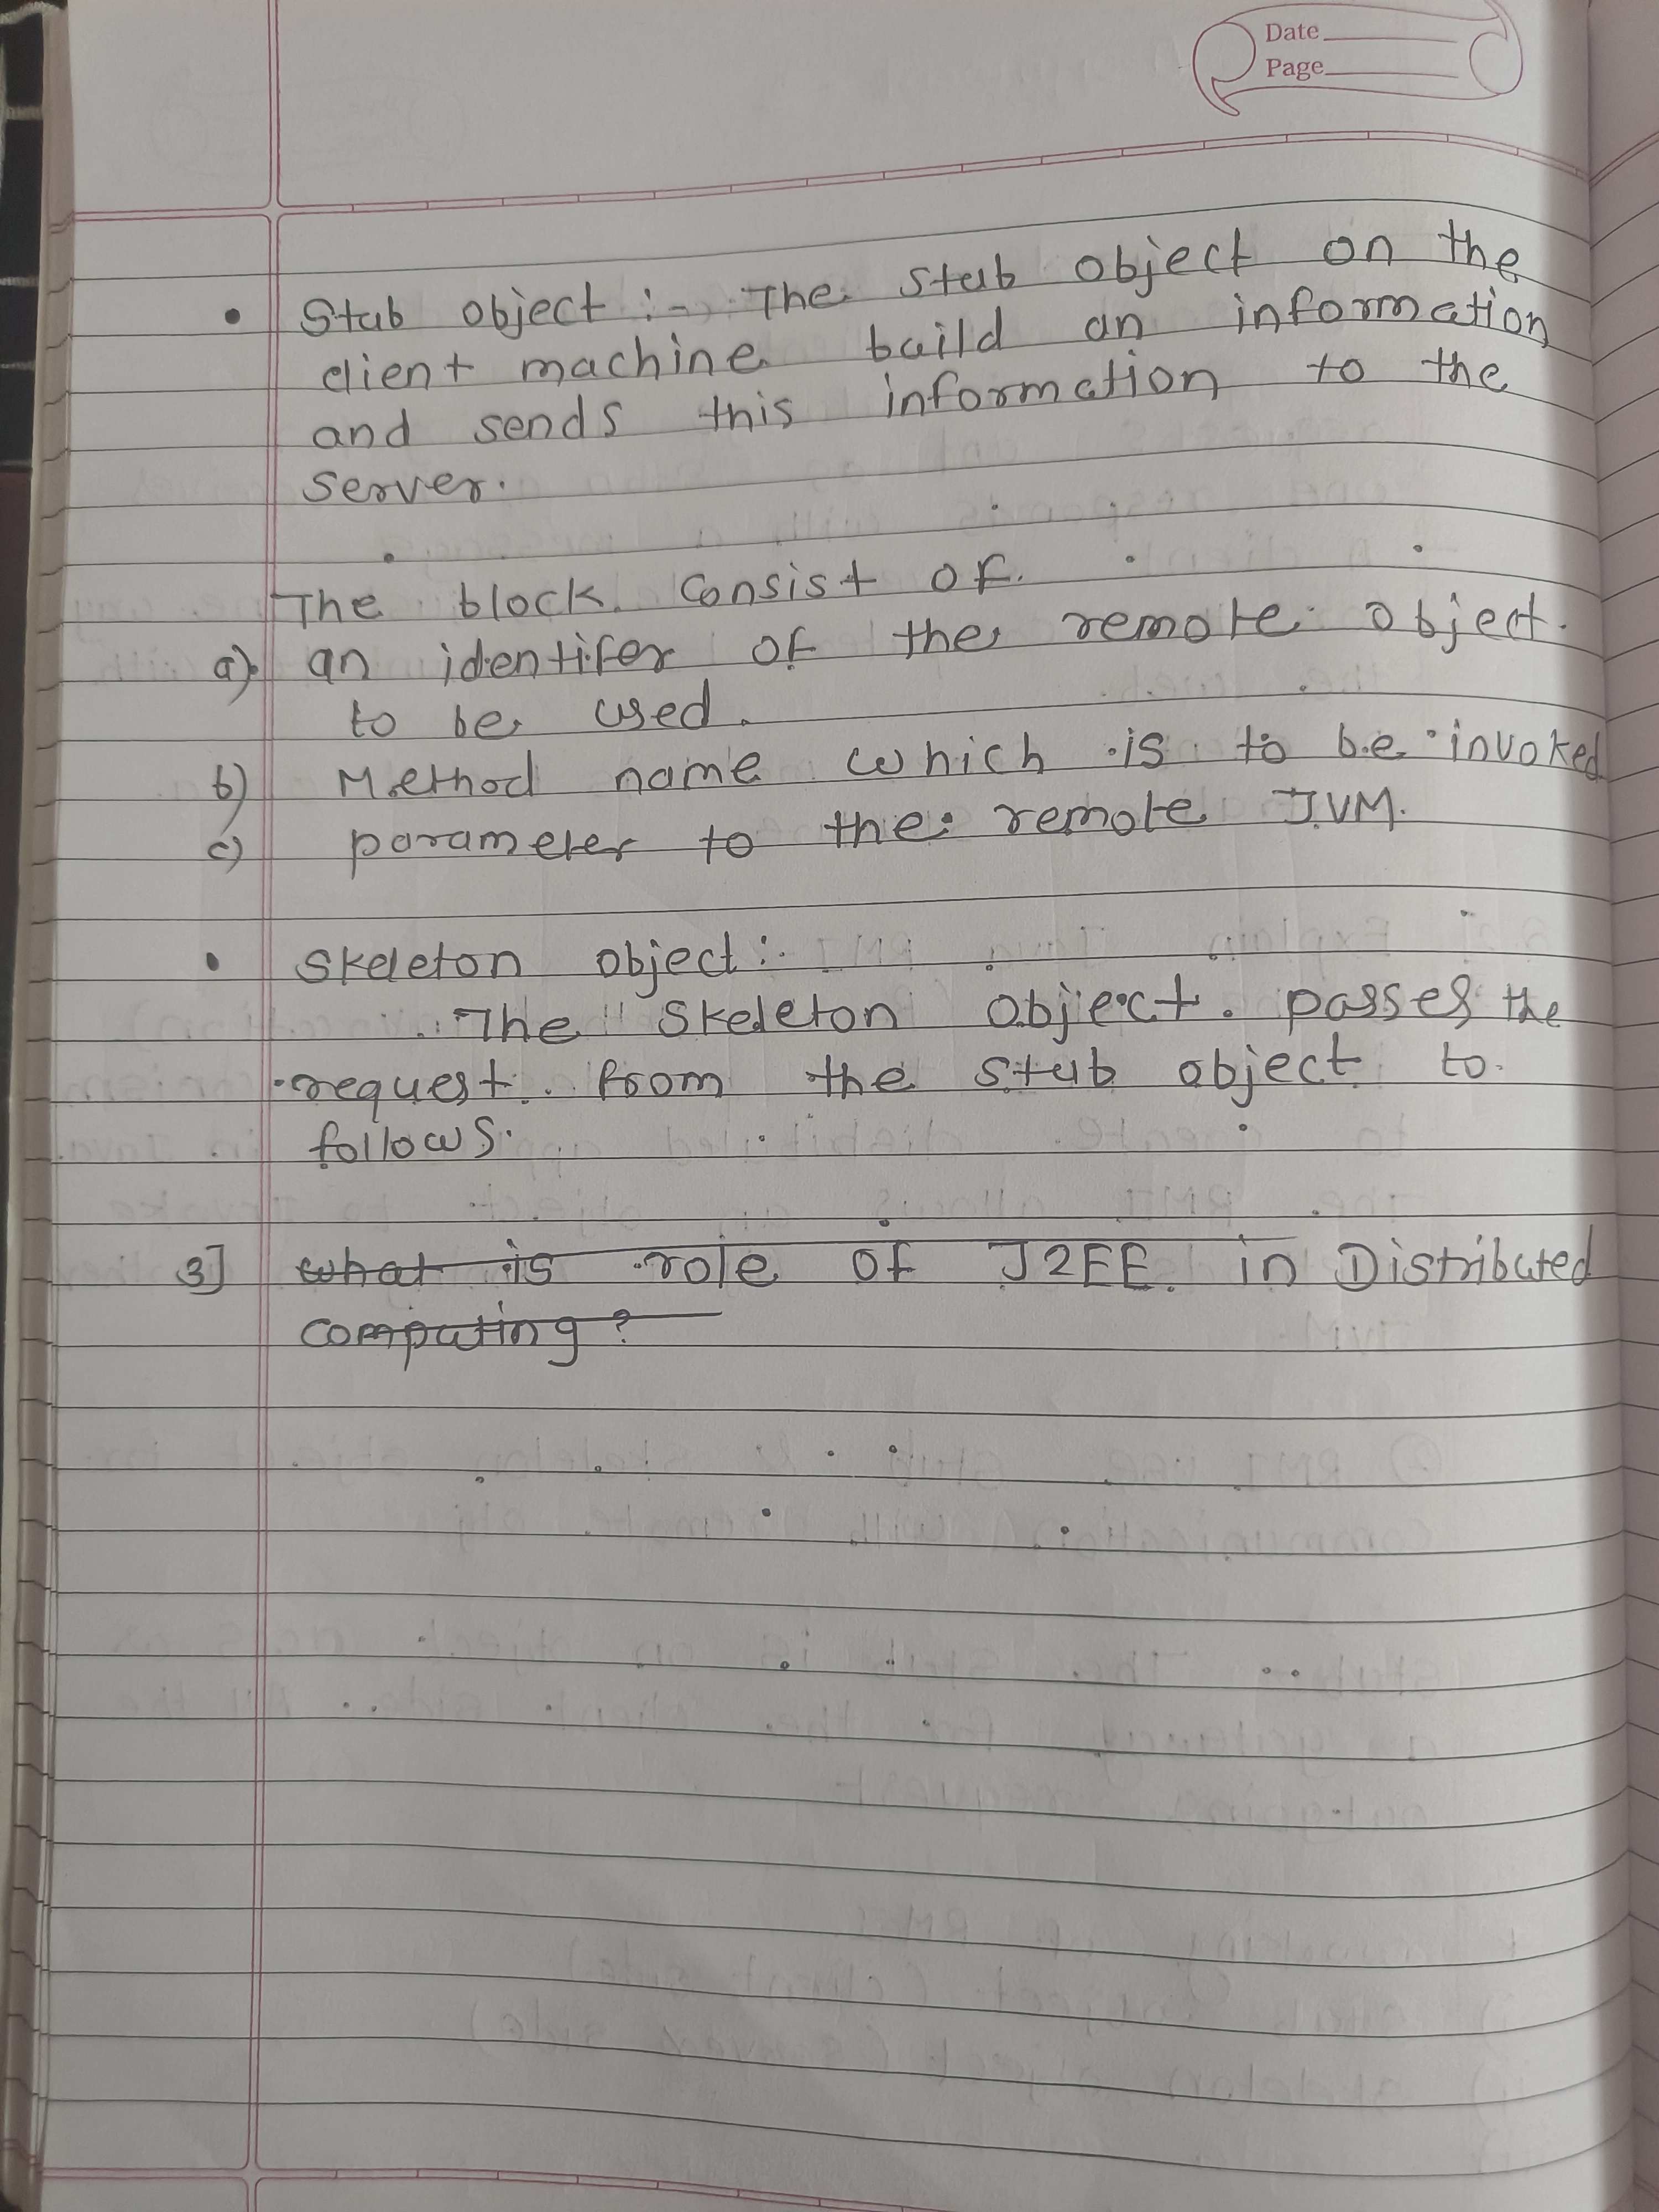 Date
Page
• Stub object :- The Stub object on the
client machine build an information
and sends this information to the
server.
The block consist of
a) an identifer of the remote object.
to be used.
b) Method name which is to be invoked
c) parameter to the remote JVM.
• Skeleton object :-
The Skeleton object passes the
request from the stub object to
follows.
3] what is role of J2EE in Distributed
computing ?